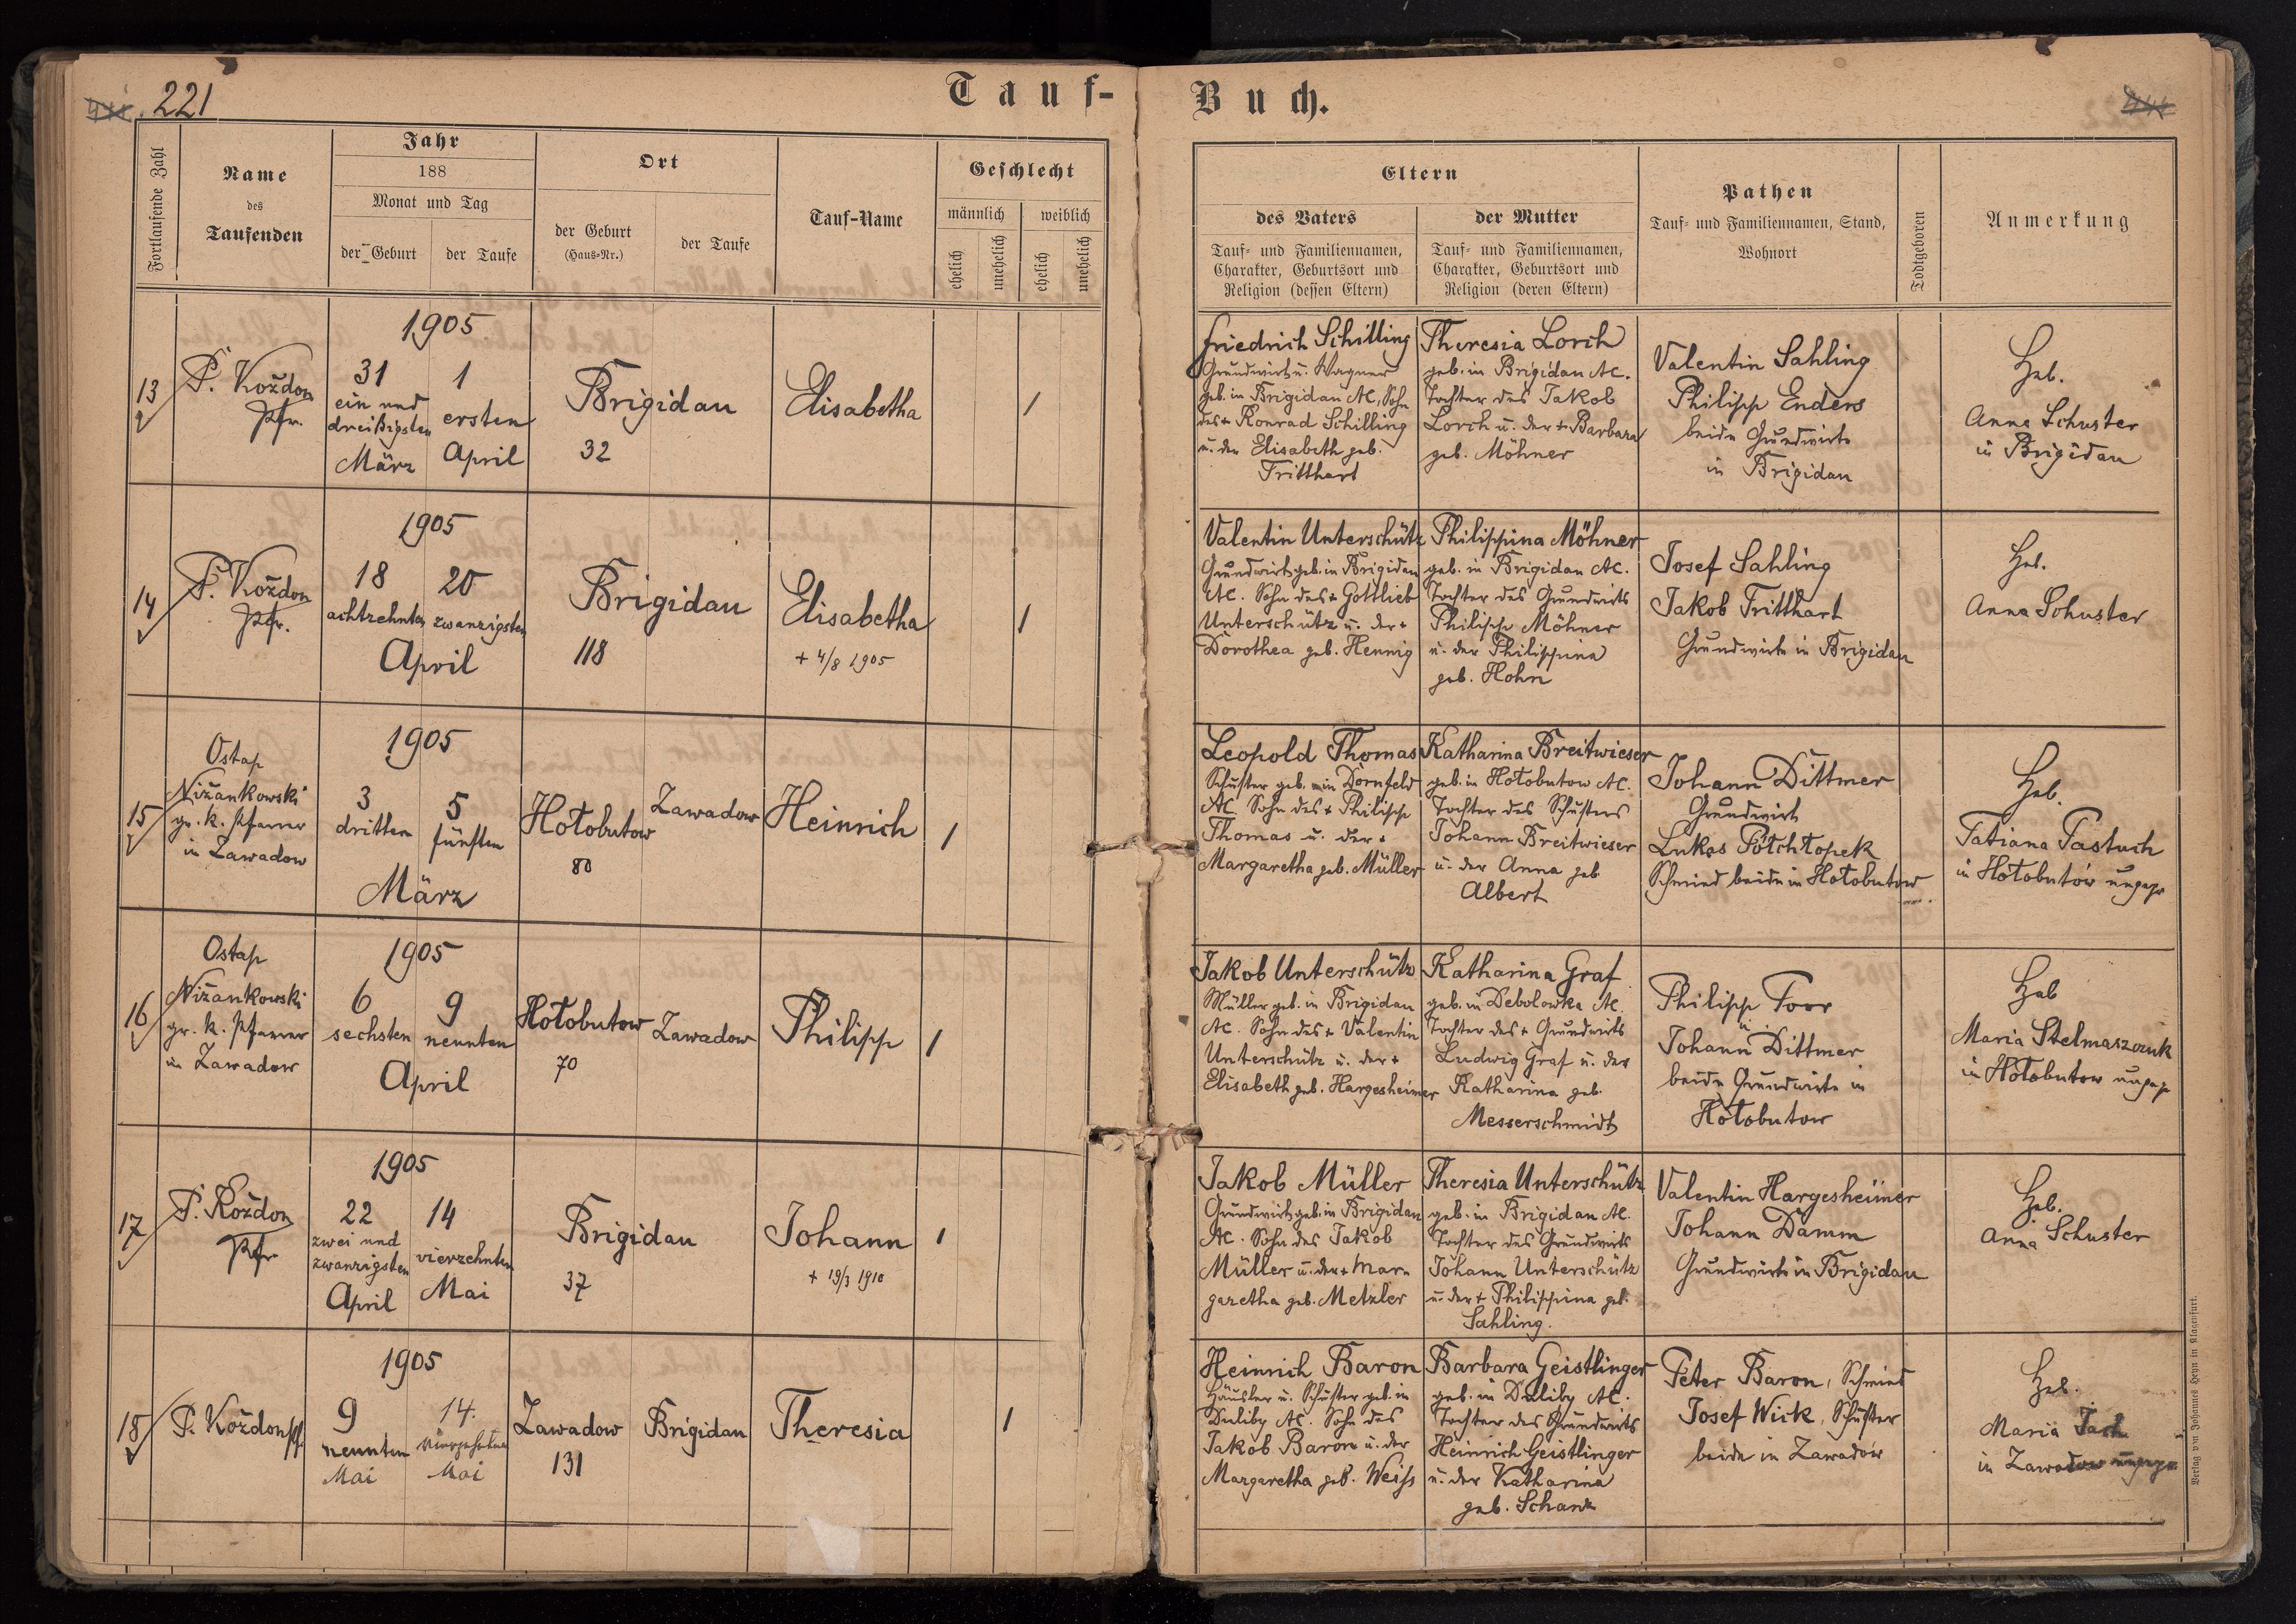 221
Tauf-
Buch.
Fortlaufende Zahl
Name
des
Taufenden
Jahr
188
Monat und Tag
der Geburt
der Taufe
Ort
der Geburt
(Haus-Nr.)
der Taufe
Tauf-Name
Geschlecht
männlich
weiblich
ehelich
unehelich
ehelich
unehelich
Eltern
des Vaters
Tauf- und Familiennamen,
Charakter, Geburtsort und
Religion (dessen Eltern)
der Mutter
Tauf- und Familiennamen,
Charakter, Geburtsort und
Religion (deren Eltern)
Pathen
Tauf- und Familiennamen, Stand,
Wohnort
Todtgeboren
Anmerkung
13
P. Koždon
Pfr.
1905
31
ein und
dreißigsten
März
1
ersten
April
Brigidau
32
Elisabetha
1
Friedrich Schilling
Grundwirt u. Wagner
geb. in Brigidau AC. Sohn
des + Konrad Schilling
u. der Elisabeth geb.
Tritthart
Theresia Lorch
geb. in Brigidau AC.
Tochter des Jakob
Lorch u. der + Barbara
geb. Möhner
Valentin Sahling
Philipp Enders
beide Grundwirte
in Brigidau
Heb.
Anna Schuster
in Brigidau
14
P. Koždon
Pfr.
1905
18
achtzehnten
20
zwanzigsten
April
Brigidau
118
Elisabetha
+ 4/8 1905
1
Valentin Unterschütz
Grundwirt geb. in Brigidau
AC. Sohn des + Gottlieb
Unterschütz u. der +
Dorothea geb. Hennig
Philippina Möhner
geb. in Brigidau AC.
Tochter des Grundwirts
Philipp Möhner
u. der Philippina
geb. Hohn
Josef Sahling
Jakob Tritthart
Grundwirte in Brigidau
Heb.
Anna Schuster
15
Ostap
Nižankowski
gr. k. Pfarrer
in Zawadow
1905
3
dritten
5
fünften
März
Hołobutow
80
Zawadow
Heinrich
1
Leopold Thomas
Schuster geb. in Dornfeld
AC. Sohn des + Philipp
Thomas u. der +
Margaretha geb. Müller
Katharina Breitwieser
geb. in Hołobutow AC.
Tochter des Schusters
Johann Breitwieser
u. der Anna geb
Albert
Johann Dittmer
Grundwirt
Lukas
Schmied beide in Hołobutow
Heb.
Tatiana Pastuch
in Hołobutów ungepr
16
Ostap
Nižankowski
gr. k. Pfarrer
in Zawadow
1905
6
sechsten
9
neunten
April
Hołobutow
70
Zawadow
Philipp
1
Jakob Unterschütz
Müller geb. in Brigidau
AC. Sohn des + Valentin
Unterschütz u. der +
Elisabeth geb. Hargesheimer
Katharina Graf
geb. in Debolowka AC.
Tochter des + Grundwirts
Ludwig Graf u. der
Katharina geb.
Messerschmidt
Philipp Foor
u.
Johann Dittmer
beide Grundwirte in
Hołobutow
Heb
Maria Stelmaszczuk
in Hołobutow ungepr
17
P. Koždon
Pfr.
1905
22
zwei und
zwanzigsten
April
14
vierzehnten
Mai
Brigidau
37
Johann
+ 19/3 1910
1
Jakob Müller
Grundwirt geb. in Brigidau
AC. Sohn des Jakob
Müller u. der + Mar=
garetha geb. Metzler
Theresia Unterschütz
geb. in Brigidau AC.
Tochter des Grundwirts
Johann Unterschütz
u. der + Philippina geb.
Sahling.
Valentin Hargesheimer
Johann Damm
Grundwirte in Brigidau
Heb.
Anna Schuster
18
P. Koždon Pf.
1905
9
neunten
Mai
14.
vierzehnten
Mai
Zawadow
131
Brigidau
Theresia
1
Heinrich Baron
Häusler u. Schuster geb. in
Duliby AC. Sohn des
Jakob Baron u. der
Margaretha geb. Weiss
Barbara Geistlinger
geb. in Duliby AC.
Tochter des Grundwirts
Heinrich Geistlinger
u. der Katharina
geb. Schanz
Peter Baron, Schmied
Josef Wick, Schuster
beide in Zawadów
Heb.
Maria
in Zawadow ungepr
Verlag von Johannes Heyn in Klagenfurt.